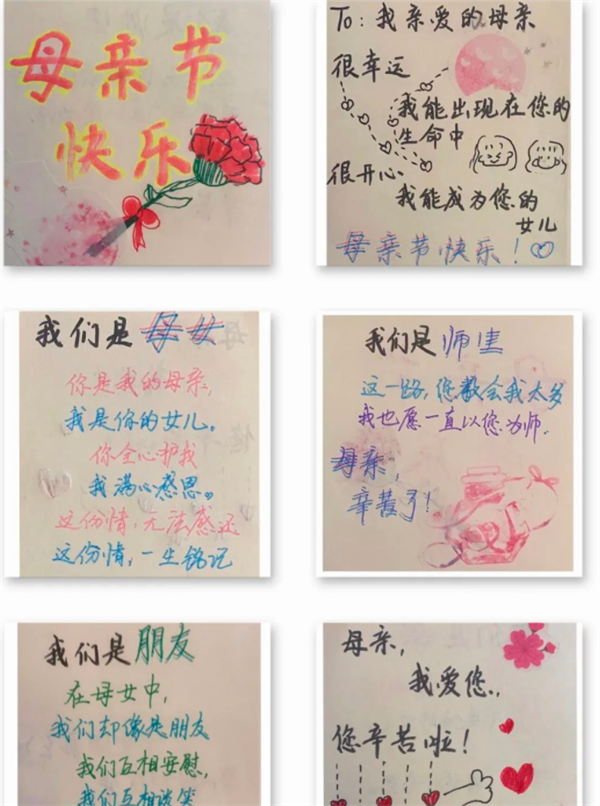 母亲节
快乐
To：我亲爱的母亲
很幸运
我能出现在您的
生命中
很开心
我能成为您的
女儿
母亲节快乐！
我们是母女
你是我的母亲，
我是你的女儿。
你全心护我
我满心感恩。
这份情，无法感还
这份情，一生铭记
我们是师徒
这一路，您教会我太多
我也愿一直以您为师.
母亲，
辛苦了！
我们是朋友
在母女中，
我们却像是朋友
我们互相安慰，
我们互相谈笑
母亲，
我爱您.，
您辛苦啦！